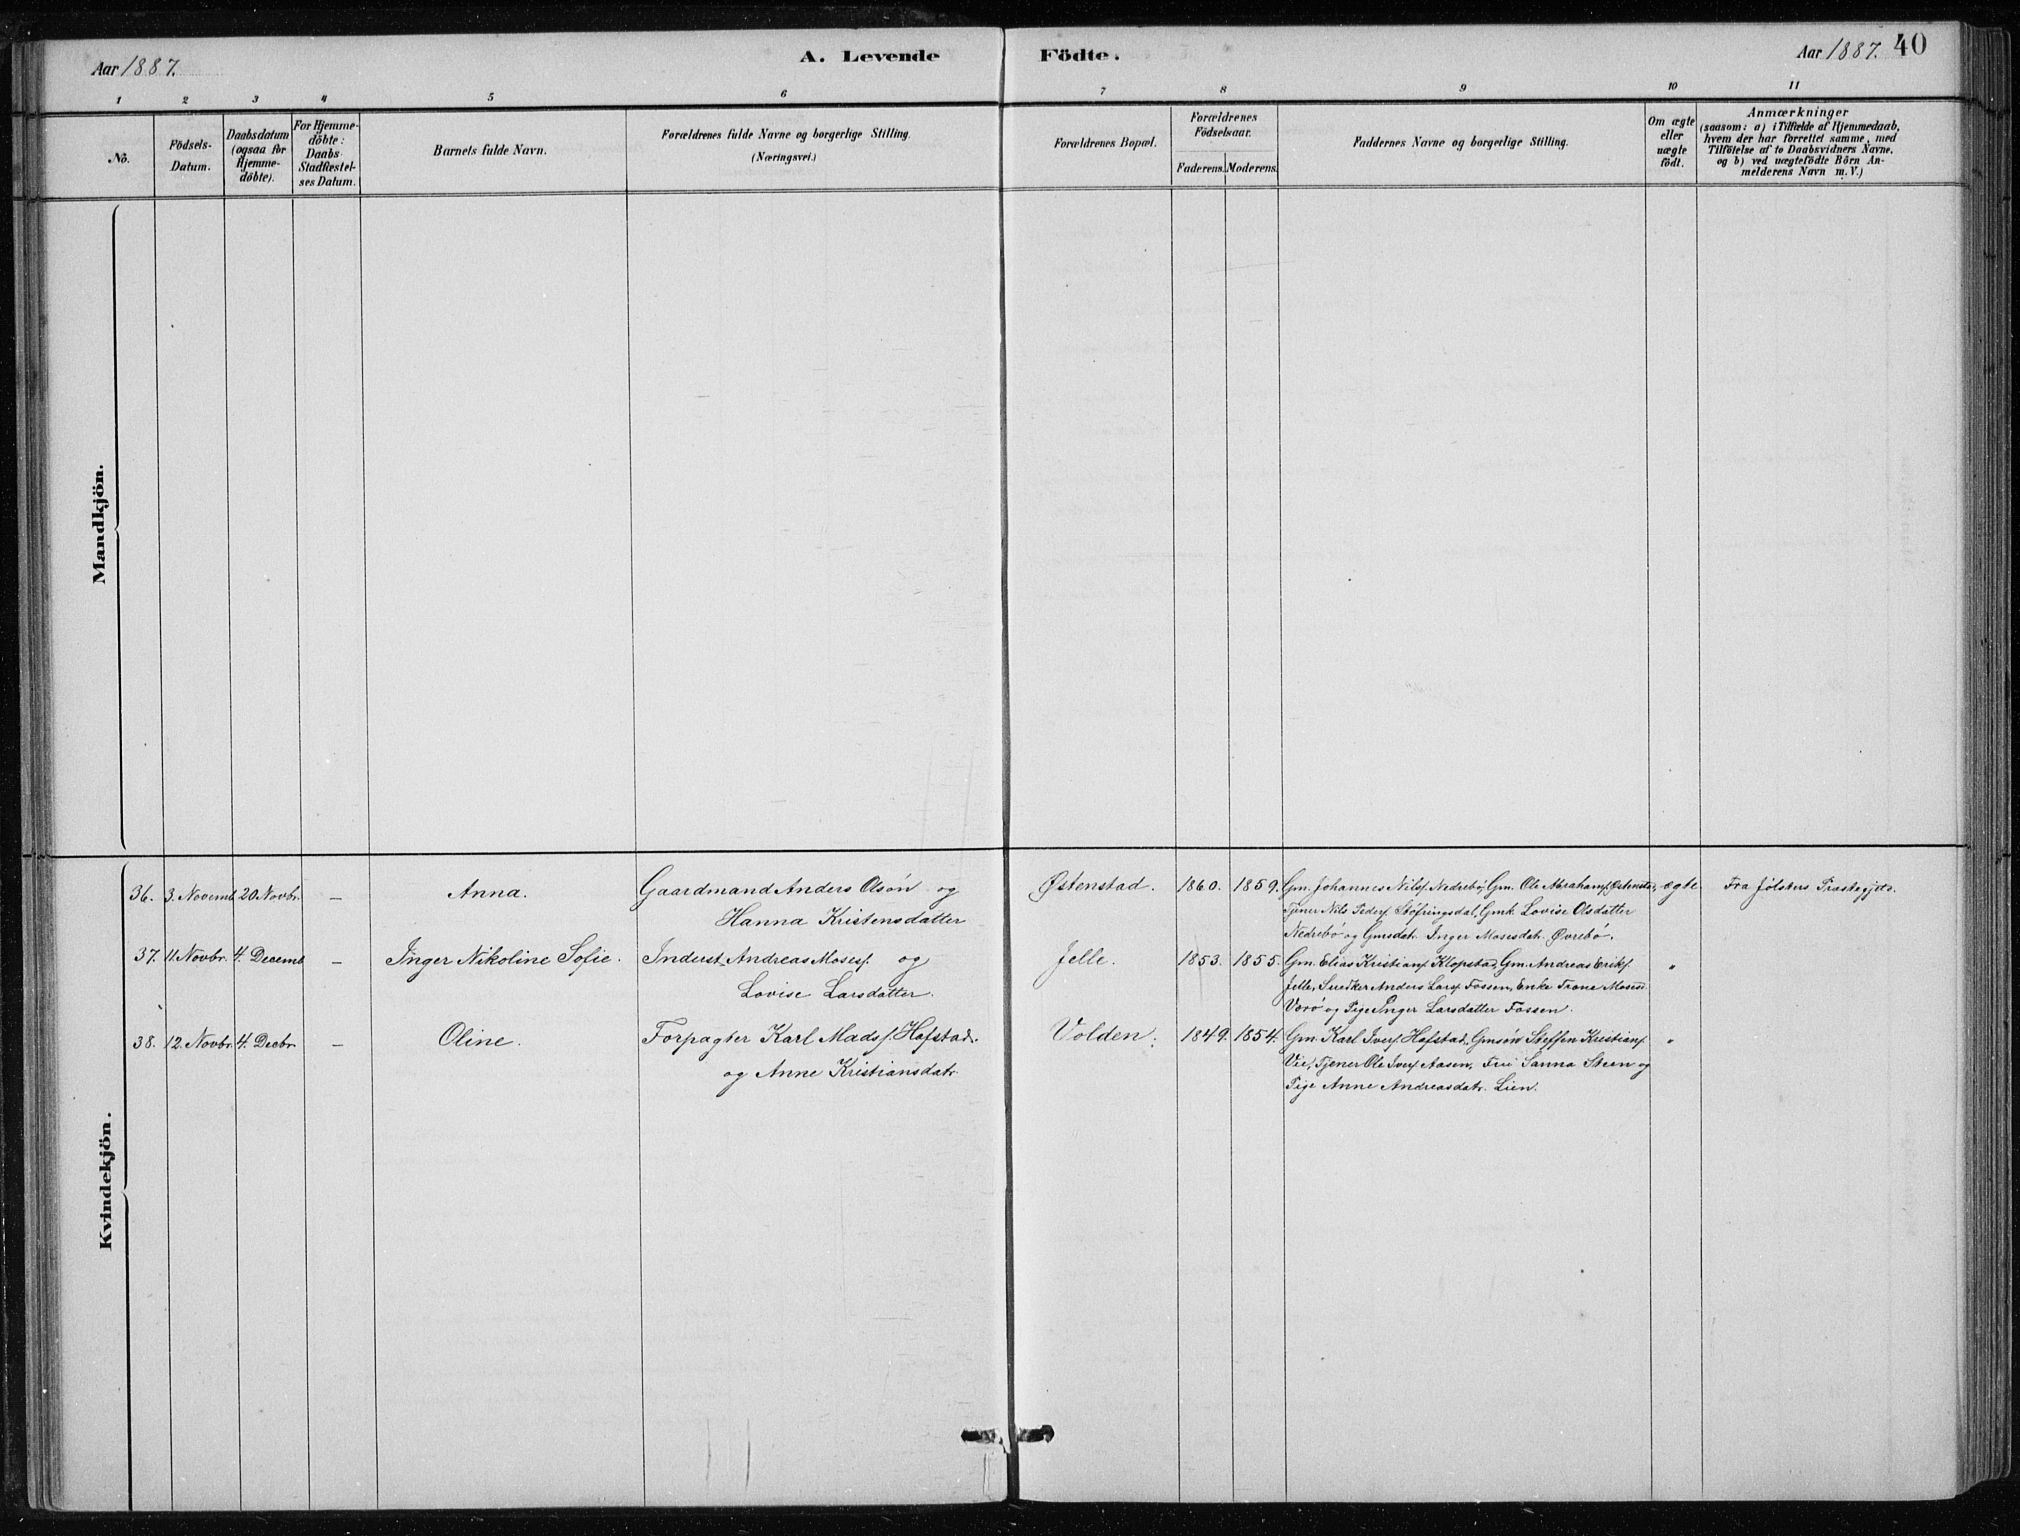 Aar 1887.
A. Levende
Födte.
Aar 1887.
40
1 2 3 4 5 6 7 8 9 10 11
No.
Födsels-
Datum.
Daabsdatum
(ogsaa for
Hjemme-
döbte).
For Hjemme-
döbte:
Daabs-
Stadfæstel-
ses Datum.
Barnets fulde Navn.
Forældrenes fulde Navne og borgerlige Stilling.
(Næringsvei.)
Forældrenes Bopæl.
Forældrenes
Födselsaar.
Faderens. Moderens.
Faddernes Navne og borgerlige Stilling.
Om ægte
eller
uægte
født.
Anmærkninger
(saasom: a) i Tilfælde af Hjemmedaab,
hvem der har forrettet samme, med
Tilföielse af to Daabsvidners Navne,
og b) ved uægtefödte Börn An-
melderens Navn m. V.)
Mandkjön.
Kvindekjön.
36. 3. Novemb. 20. Novbr. — Anna. Gaardmand Anders Olsøn og Østenstad. 1860. 1859. Gm. Johannes Nilss. Nedrebø, Gm. Ole Abrahams. Østenstad, ægte Fra Jølsters Præstegj.
Hanna Kristensdatter Tjener Nils Peders. Støfringsdal, Gmk. Lovise Olsdatter
Nedrebø og Gmsdatr. Inger Mosesdatr. Øvrebø.
37. 11. Novbr. 4. Decemb. — Inger Nikoline Sofie. Inderst. Andreas Moses. og Jelle. 1853. 1855. Gm. Elias Kristians. Klopstad, Gm. Andreas Eriks. "
Lovise Larsdatter. Jelle, Snedker Anders Lars. Fossen, Enke Trone Moses
og Pige Inger Larsdatter Fossen.
38. 12. Novbr. 4. Decbr. — Oline. Forpagter Karl Mads. Hafstad. Volden. 1849. 1854. Gm. Karl Ivers. Hafstad, Gmsøn Steffen Kristians. "
og Anne Kristiansdatr. Vie, Tjener Ole Ivers. Aasen, Fru Sanna Steen og
Pige Anne Andreasdatr. Lien.